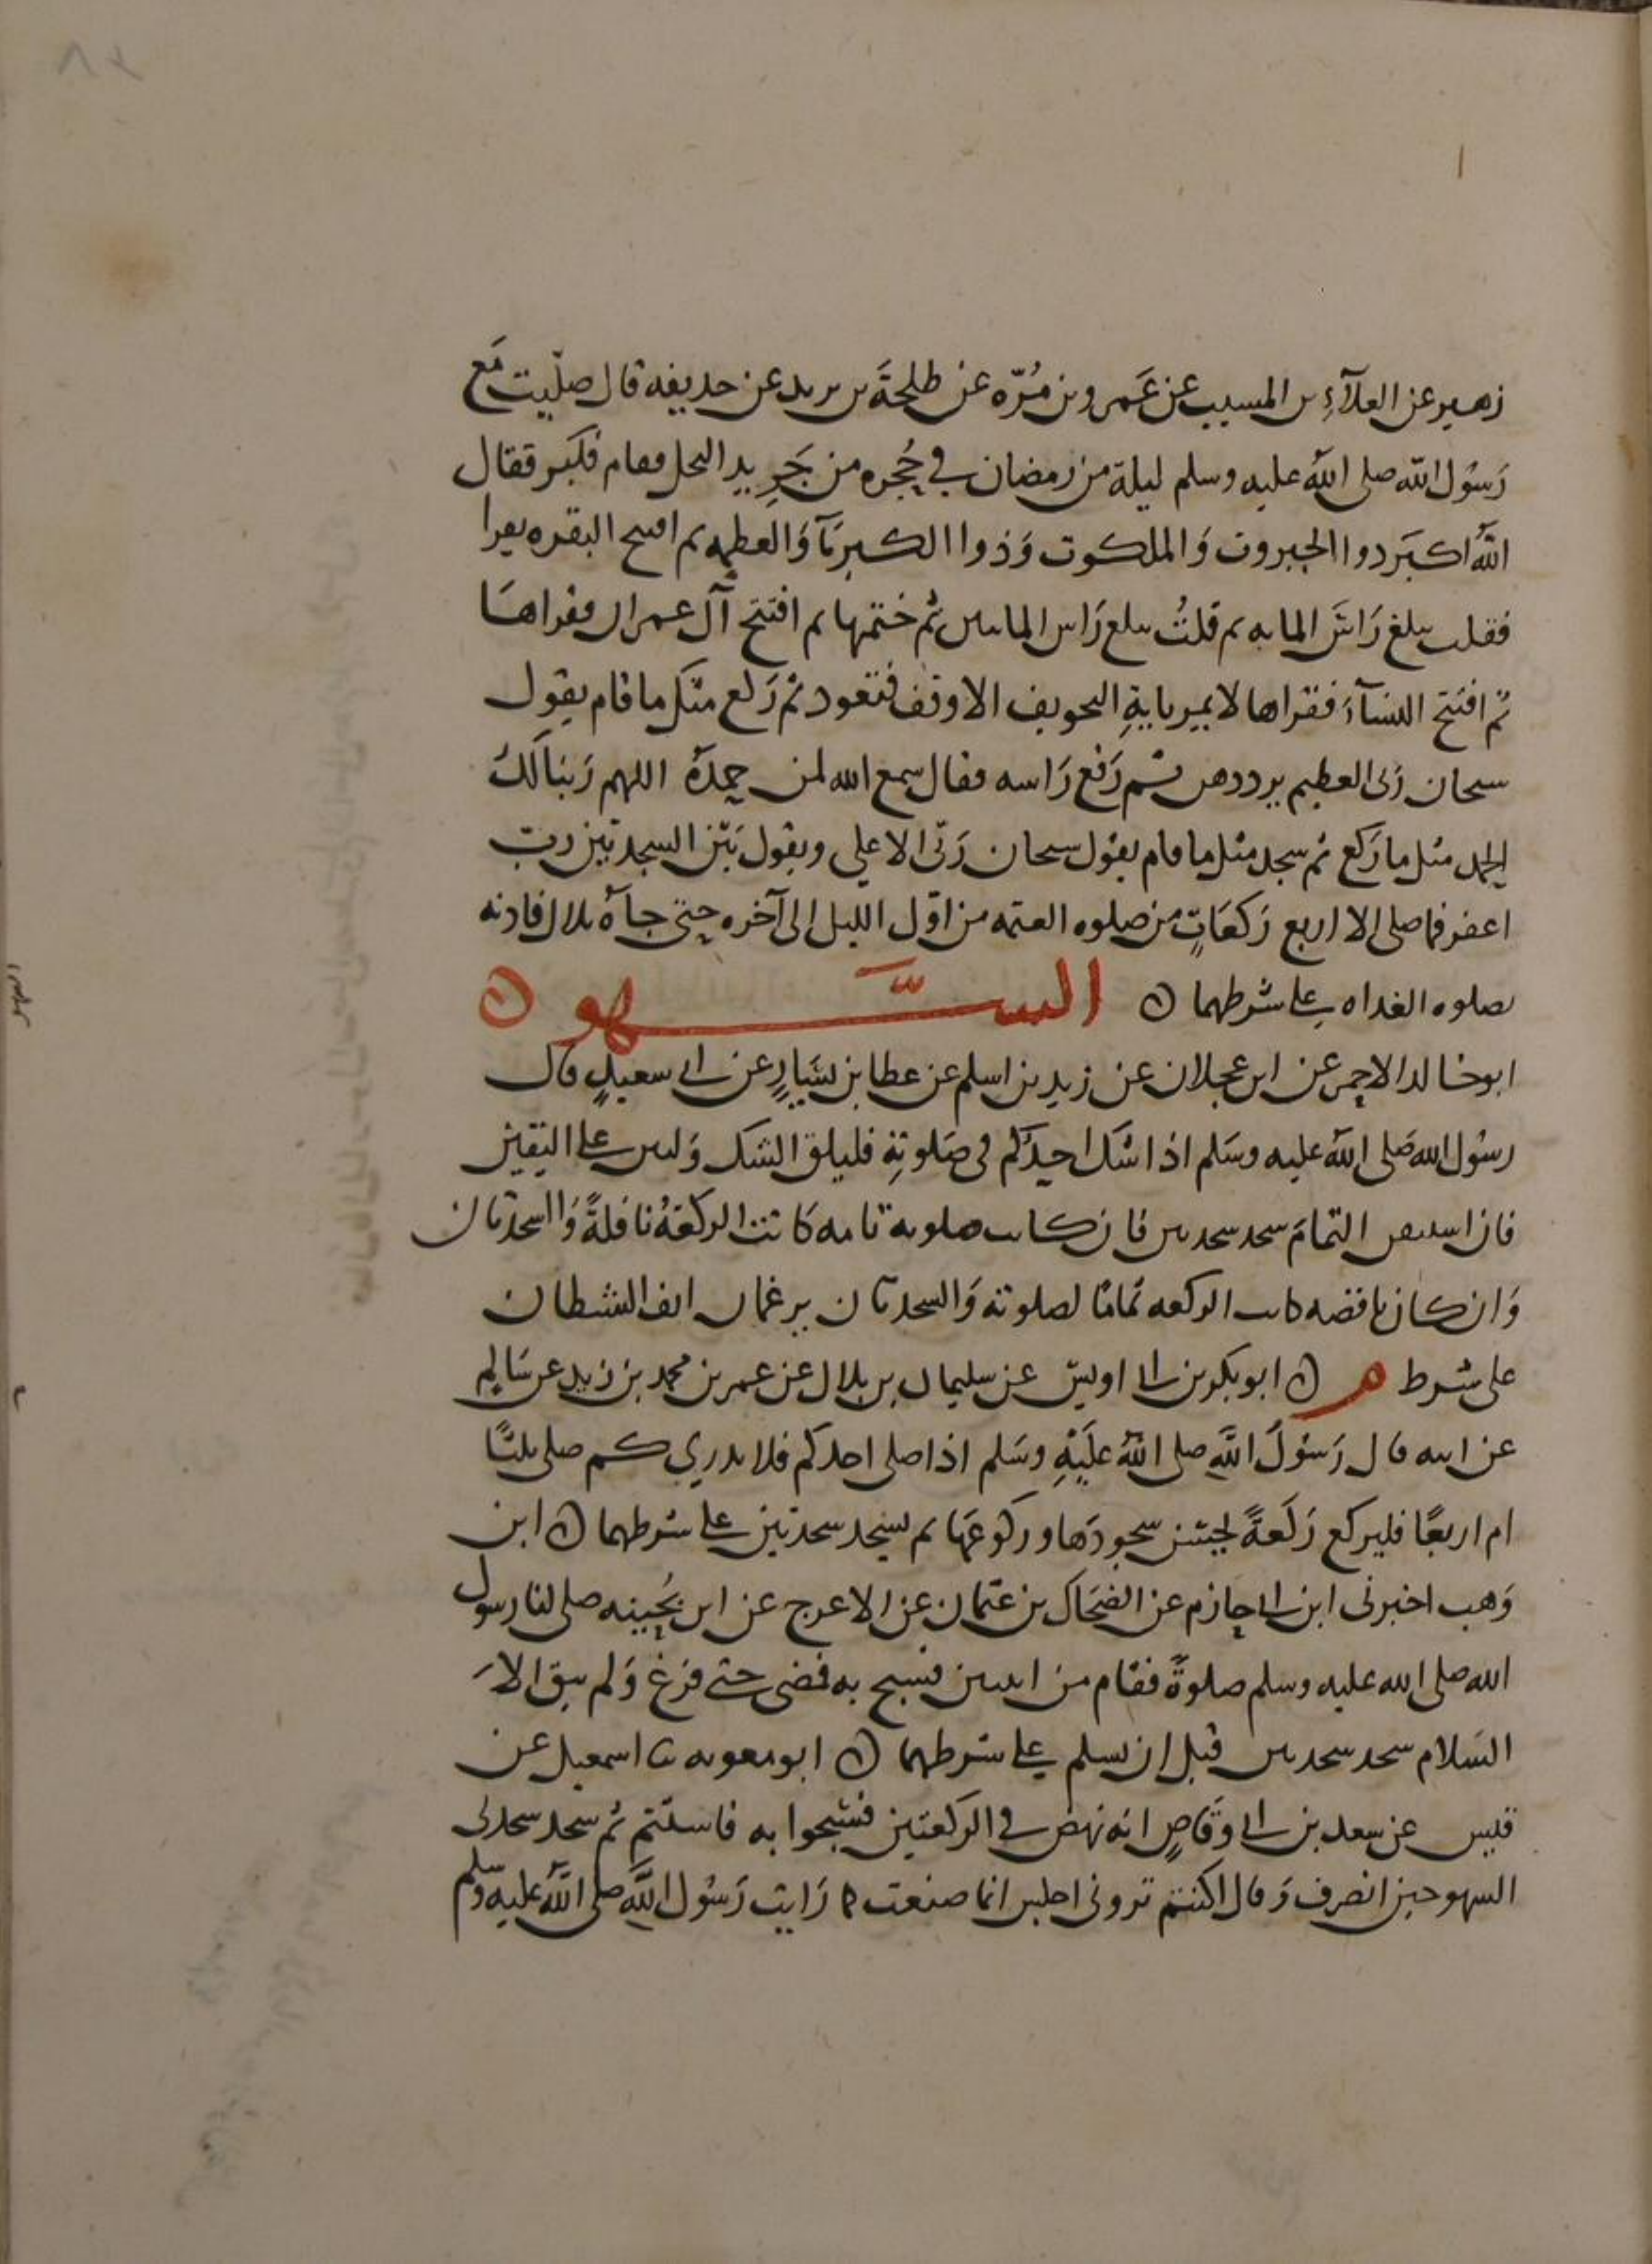 زهير عن العلآءِ بن المسيب عن عَمرو بن مُرّه عن طلحةَ بن يزيد عن حذيفه قال صلّيت مَع
رَسُول الله صلى الله عليه وسلم ليلة من رمضان في حُجره من جَرِيد النخل فقام فكبر فقال
اللهُ اكبَر ذوا الجبروت وَالملكوت وَذوا الكبريَآ وَالعظمه ثم افتتح البقره يقرا
فقلت يبلغ رَاسَ المايه ثم قلتُ يبلغ رَاس المايتين ثم ختمها ثم افتتح آل عمران فقراهَا
ثم افتتح النسَآءَ فقراها لا يمير بايةِ التخويف الا وقف فتعوذ ثم رَكع مثل ما قام يقول
سبحان رَبى العظيم يرددهن ثم رَفع رَاسه فقال سمع الله لمن حمدَهُ اللهم رَبنا لكَ
الحمد مثل ما رَكع ثم سجد مثل ما قام يقول سبحان رَبّى الاعلى ويقول بَيْن السجدتين ربّ
اغفر فما صلى الا اربع رَكعَاتٍ من صلوه العتمه من اوّل الليل الى آخره حتى جاَهُ بلال فاذنه
بصلوه الغداه على شرطهما ه السَّهو ه
ابو خالد الاحمر عن ابن عجلان عن زيد بن اسلم عن عطا بن يسَارٍ عن ابى سعيدٍ قال
رسُول الله صَلى اللهُ عليه وسَلم اذا شك احدُكم فى صَلوتِهِ فليلق الشك وَليبن على اليقين
فان استيقن التمامَ سجد سجدتين فان كانت صلوته تامه كانت الركعَةُ نافلةً وَالسجدتان
وَان كان ناقصه كانت الركعه تمامًا لصلوته وَالسجدتان يرغمان انف الشيطان
على شرط م ه ابو بكر بن ابى اويس عن سليمان بن بلال عن عمر بن محمد بن زيد عن سَالم
عن ابيه قال رَسُولُ اللهِ صلى اللهُ عَليْهِ وسَلم اذا صلى احدكم فلا يدري كم صلى ثلثًا
ام اربعًا فليركع رَكعَةً يحسن سجودَها وركوعَها ثم يسجد سجدتين على شرطهما ه ابن
وَهب اخبرنى ابن ابى حازم عن الضحَاك بن عثمان عن الاعرج عن ابن بُحينه صلى لنا رسول
الله صلى الله عليه وسلم صلوةً فقام من اثنين فسبح به فمضى حتى فرَغ وَلم يبق الا
السَلام سجد سجدتين قبل ان يسلم على شرطهما ه ابو معويه ثنا اسمعيل عن
قيس عن سعد بن ابى وَقاصٍ انه نهض في الركعتين فسَبحوا به فاستتم ثم سجد سجدتى
السهو حين انصرف وَقال اكنتم ترونى اجلس انما صنعت كما رَايت رَسُول اللهِ صلى اللهُ عليه وسلم